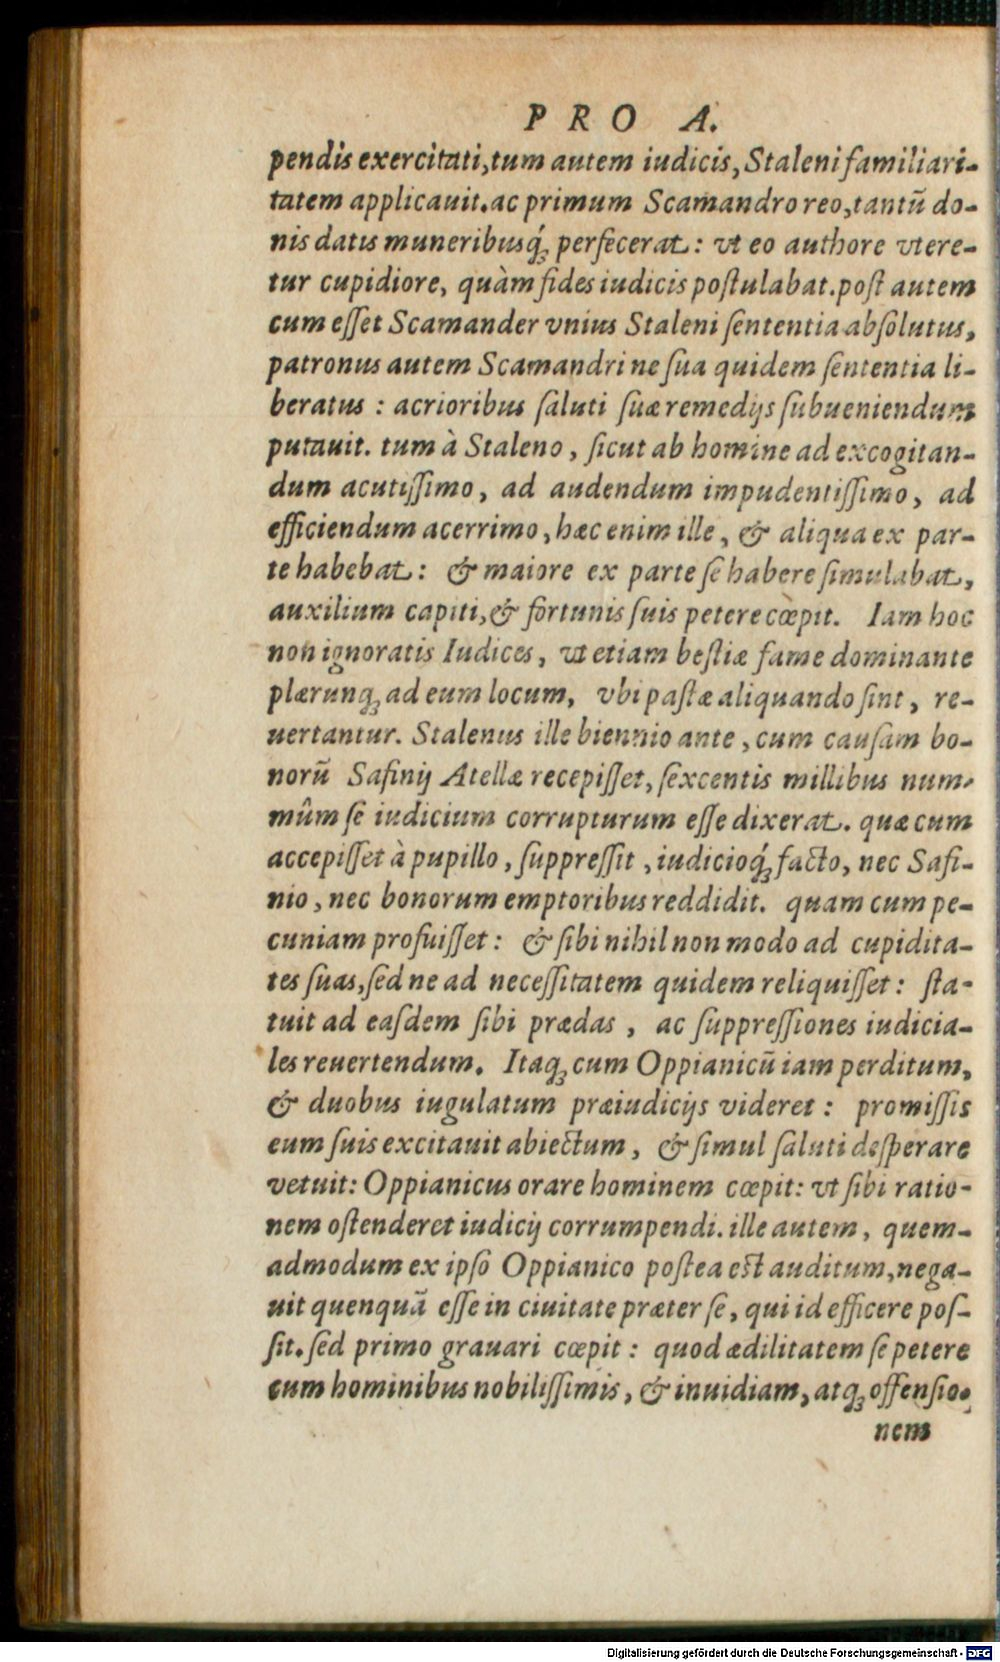 PRO A.
pendis exercitati, tum autem iudicis, Staleni familiari-
tatem applicauit. ac primum Scamandro reo, tantũ do-
nis datis muneribusq́ꝫ perfecerat: vt eo authore vtere-
tur cupidiore, quàm fides iudicis poſtulabat. poſt autem
cum eſſet Scamander vnius Staleni ſententia abſolutus,
patronus autem Scamandri ne ſua quidem ſententia li-
beratus : acrioribus ſaluti ſuæ remedijs ſubueniendum
putauit. tum à Staleno, ſicut ab homine ad excogitan-
dum acutiſſimo, ad audendum impudentiſſimo, ad
efficiendum acerrimo, hæc enim ille, & aliqua ex par-
te habebat: & maiore ex parte ſe habere ſimulabat,
auxilium capiti, & fortunis ſuis petere cœpit. Iam hoc
non ignoratis Iudices, vt etiam beſtiæ fame dominante
plærunqꝫ ad eum locum, vbi paſtæ aliquando ſint, re-
uertantur. Stalenus ille biennio ante, cum cauſam bo-
norũ Safinij Atellæ recepiſſet, ſexcentis millibus num-
mûm ſe iudicium corrupturum eſſe dixerat. quæ cum
accepiſſet à pupillo, ſuppreſſit, iudicioq́ꝫ facto, nec Safi-
nio, nec bonorum emptoribus reddidit. quam cum pe-
cuniam profuiſſet: & ſibi nihil non modo ad cupidita-
tes ſuas, ſed ne ad neceſſitatem quidem reliquiſſet: ſta-
tuit ad eaſdem ſibi prædas, ac ſuppreſſiones iudicia-
les reuertendum. Itaqꝫ cum Oppianicũ iam perditum,
& duobus iugulatum præiudicijs videret: promiſſis
eum ſuis excitauit abiectum, & ſimul ſaluti deſperare
vetuit: Oppianicus orare hominem cœpit: vt ſibi ratio-
nem oſtenderet iudicij corrumpendi. ille autem, quem-
admodum ex ipſo Oppianico poſtea eſt auditum, nega-
uit quenquã eſſe in ciuitate præter ſe, qui id efficere poſ-
ſit. ſed primo grauari cœpit: quod ædilitatem ſe petere
cum hominibus nobiliſſimis, & inuidiam, atqꝫ offenſio-
nem
Digitalisierung gefördert durch die Deutsche Forschungsgemeinschaft - DFG